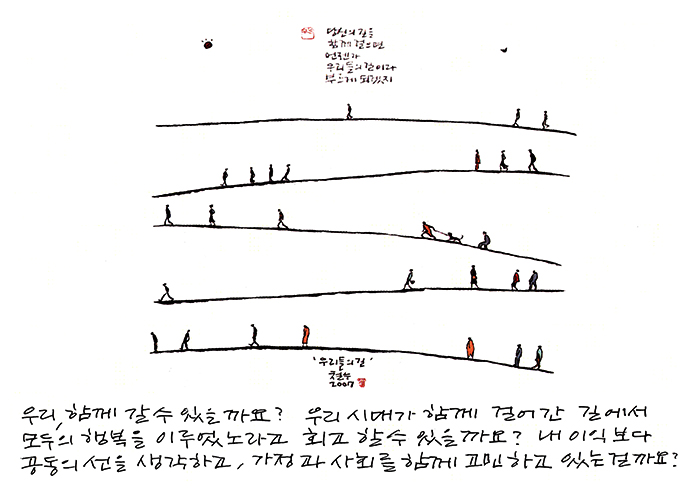 당신의 길을
함께 걸으면
언젠가
우리들의 길이라
부르게 되겠지
'우리들의 길'
2007
우리, 함께 갈 수 있을까요? 우리 시대가 함께 걸어간 길에서
모두의 행복을 이루었노라고 회고 할 수 있을까요? 내 이익 보다
공동의 선을 생각하고, 가정과 사회를 함께 고민하고 있는걸까요?